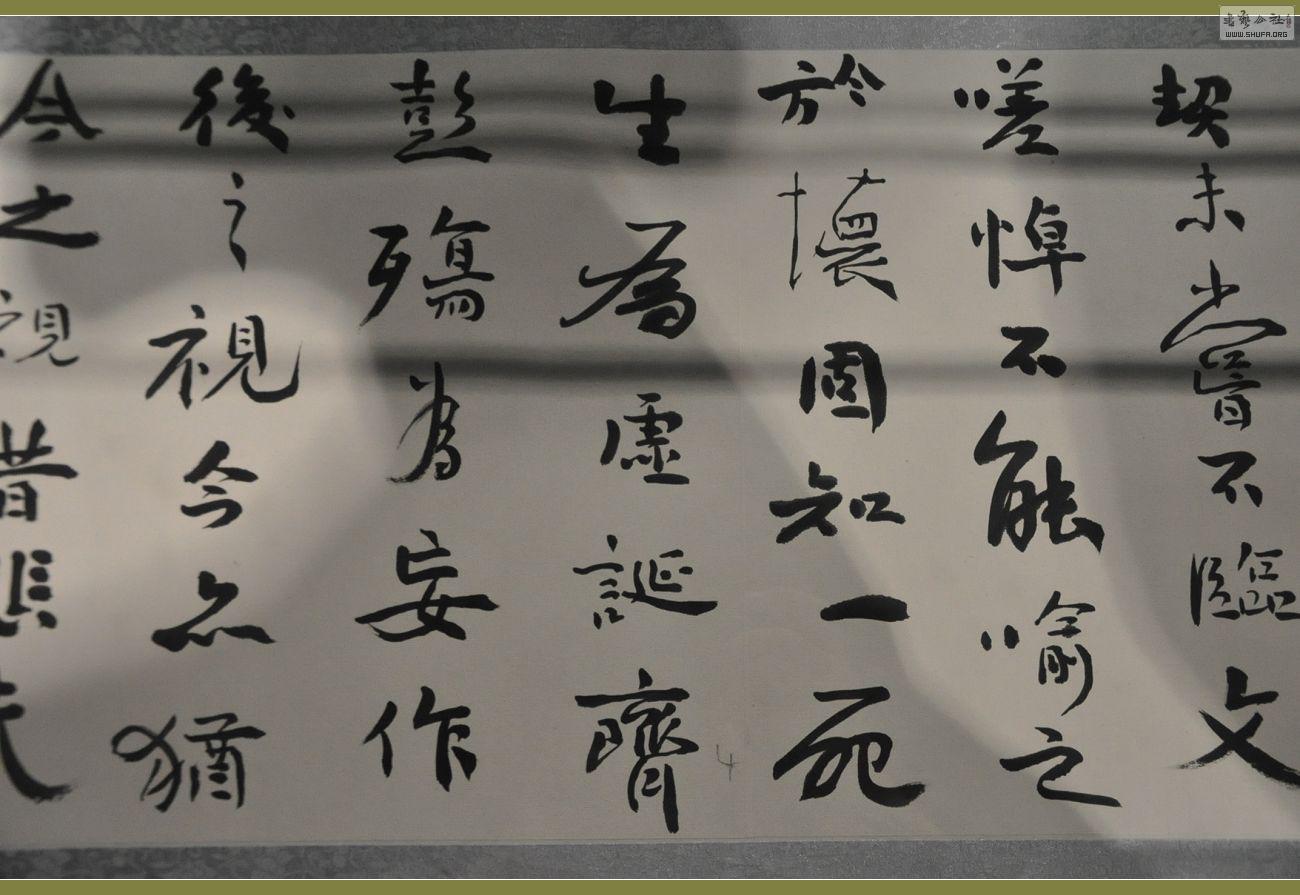 契未嘗不臨文
嗟悼不能喻之
於懷固知一死
生為虛誕齊
彭殤為妄作
後之視今亦猶
今之視昔悲夫
書藝公社
WWW.SHUFA.ORG